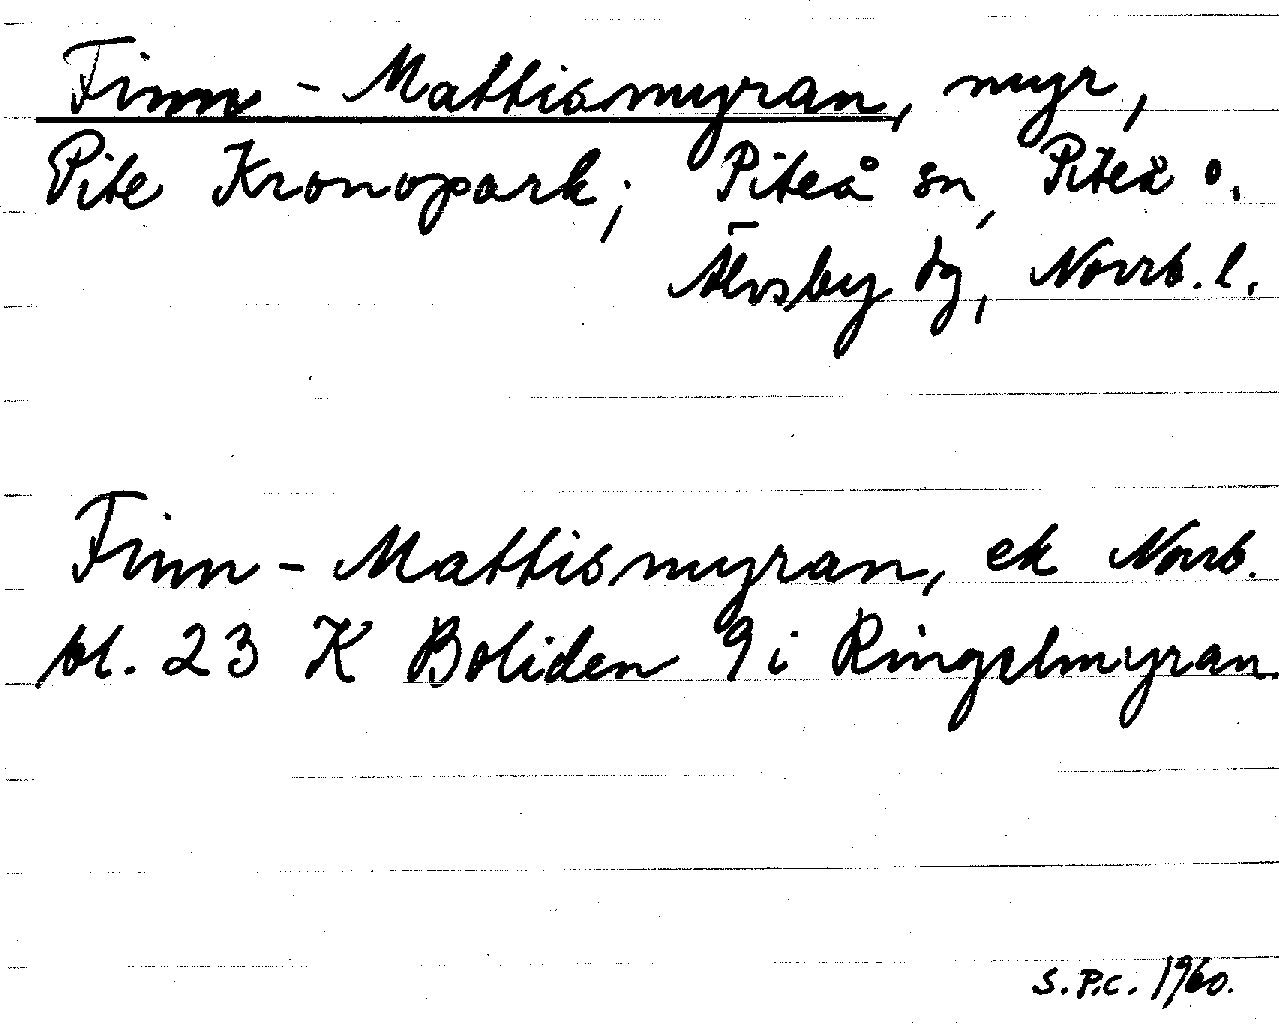 Finn-Mattismyran, myr,
Pite Kronopark; Piteå sn, Piteå o.
Älvsby tg, Norrb. l.
Finn-Mattismyran, ek Norrb.
bl. 23 K Boliden 9 i Ringelmyran.
S.P.C. 1960.